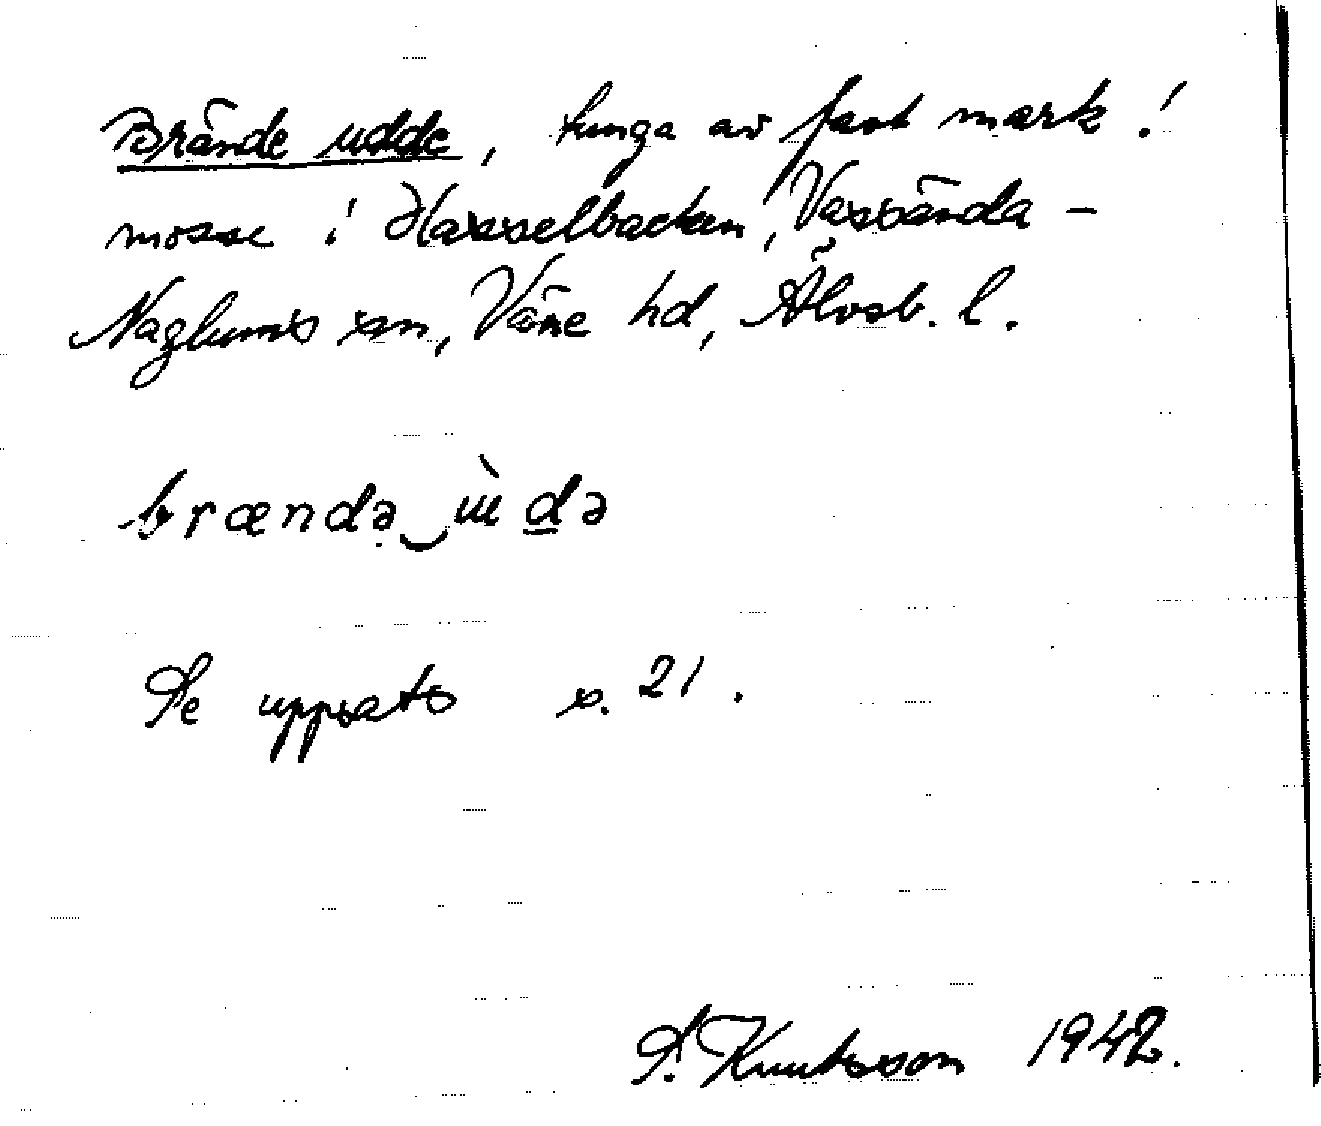 Brände udde, tunga av fast mark i
mosse i Hasselbacken, Vassända -
Naglums sn, Väne hd, Älvsb. l.
brændə‿ùdə
Se uppsats s. 21.
Knutsson 1942.